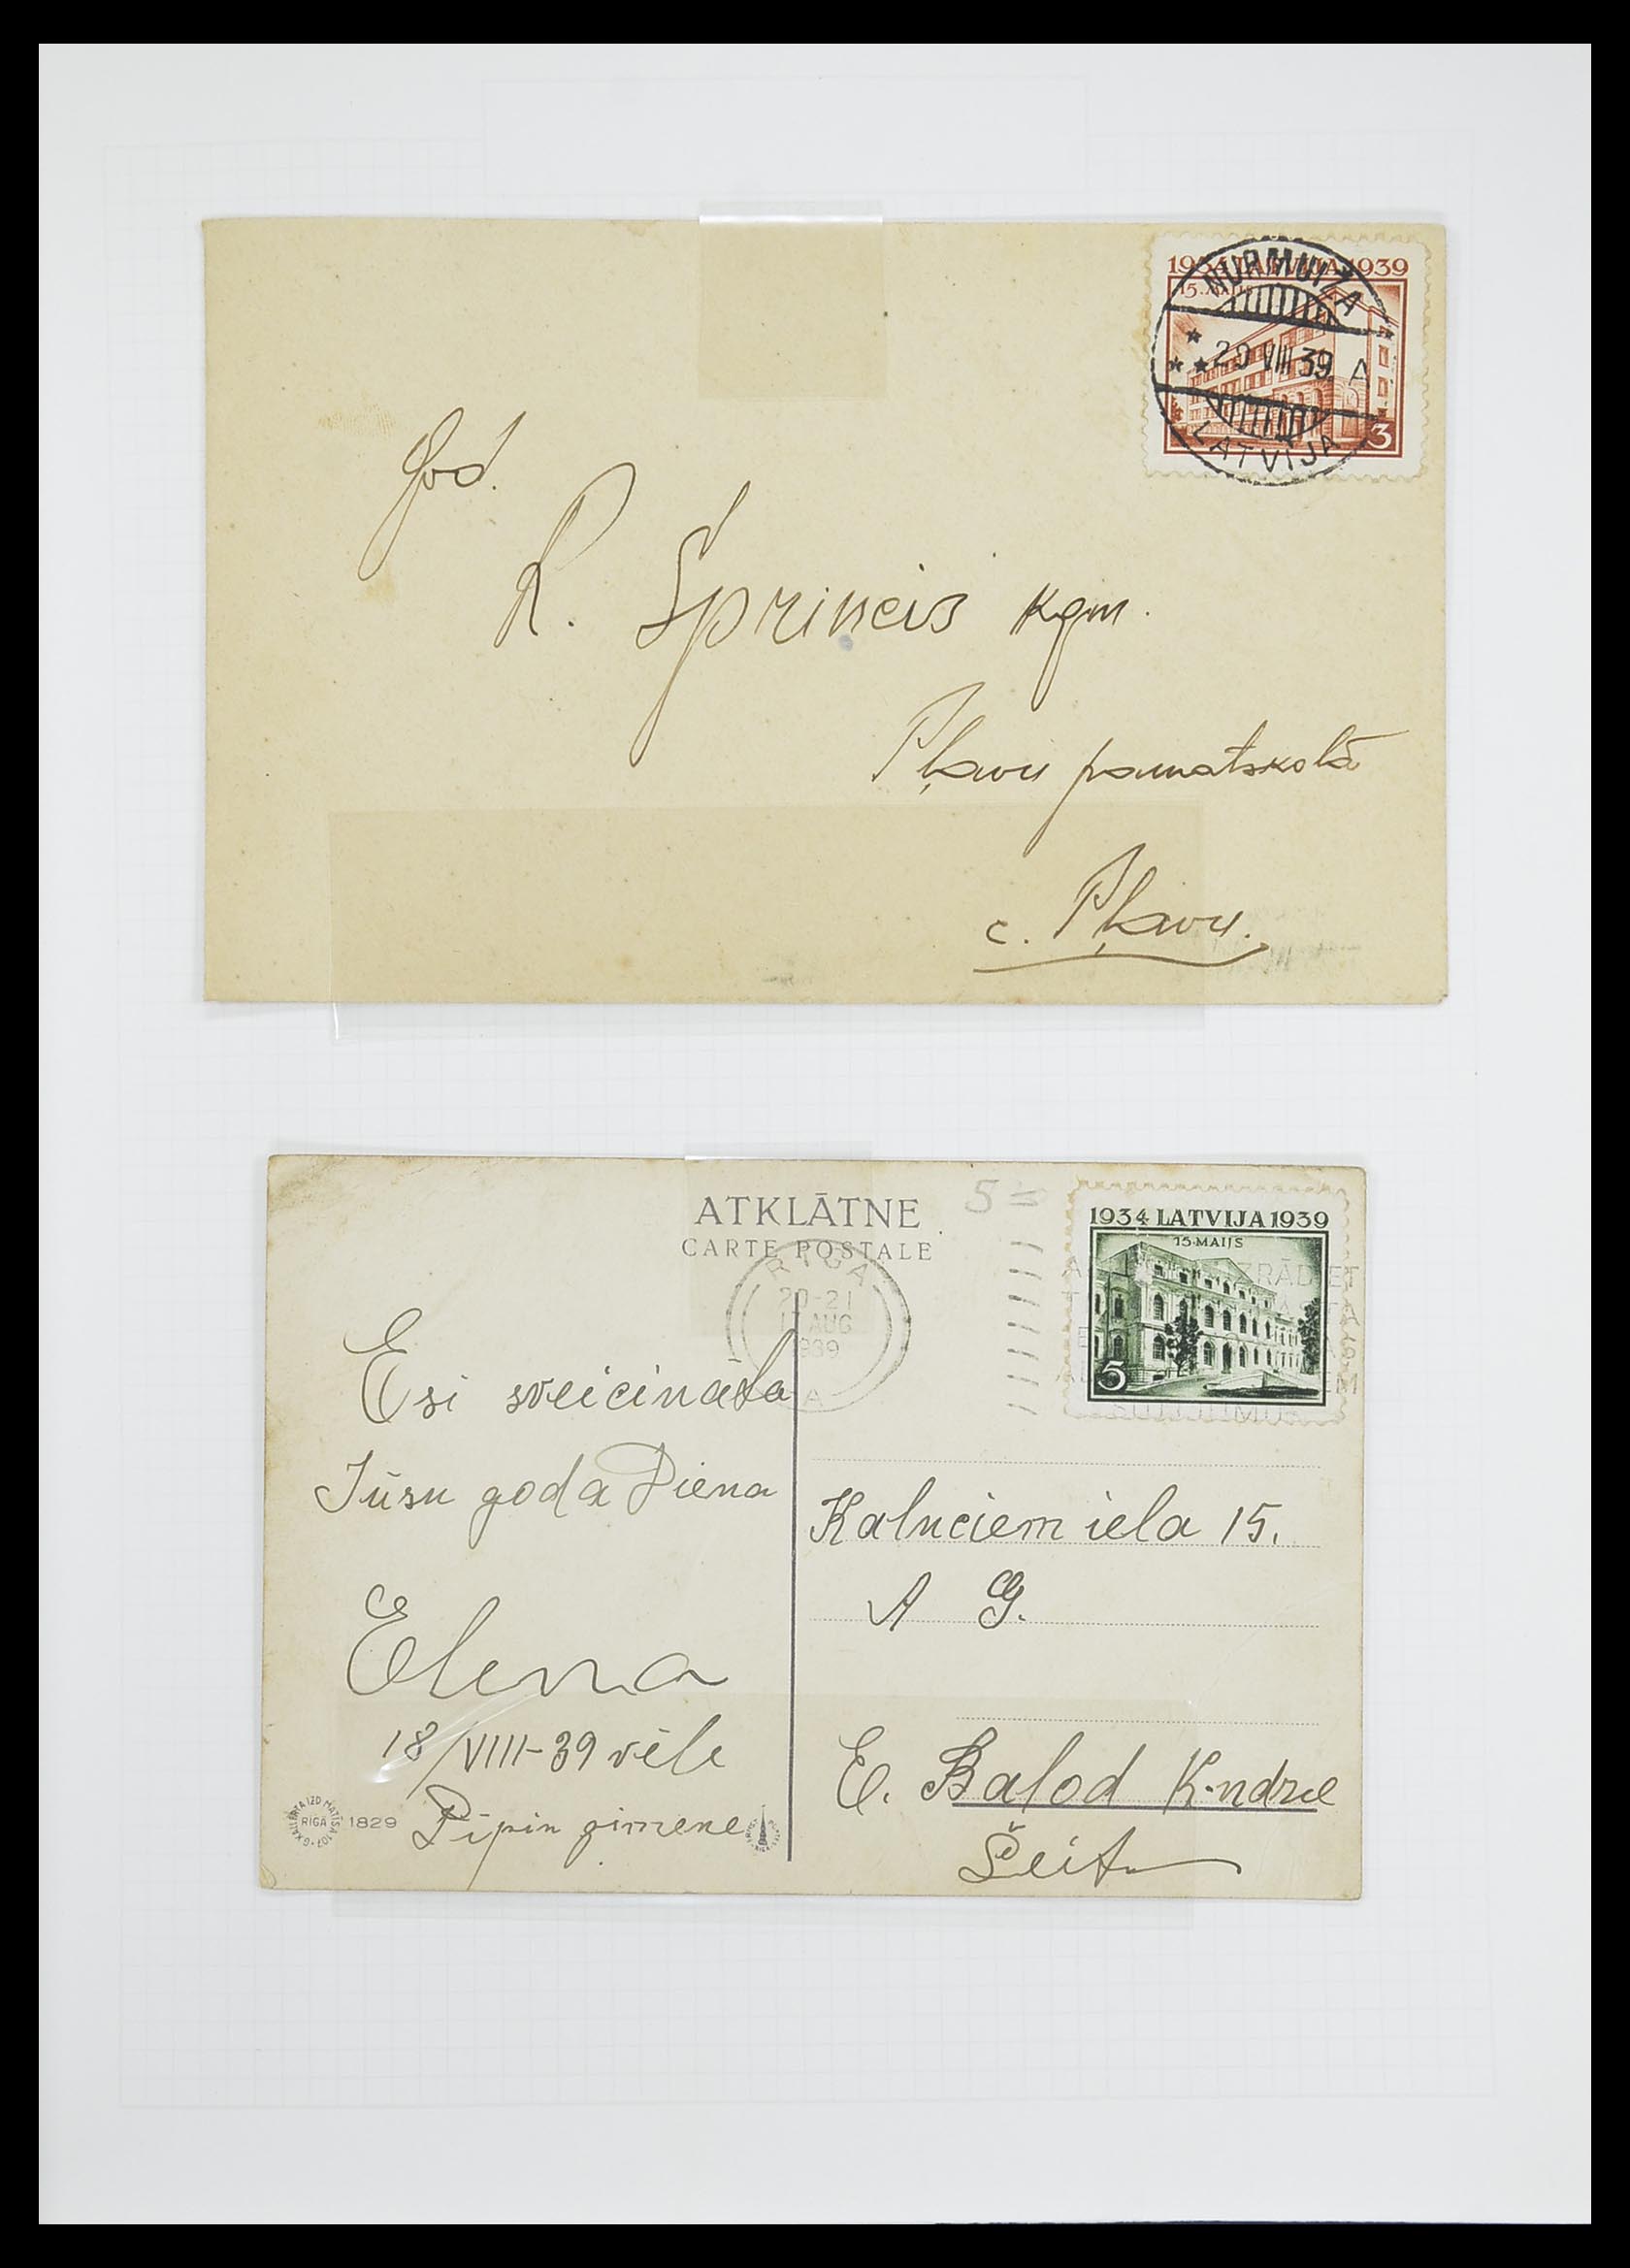 1934 LATVIJA 1939
15. MAIJS
3
NURMUIŽA
20 VIII 39 A
LATVIJA
God.
R. Sprincis kgm.
Pļavu pamatskolā
c. Pļavu.
ATKLĀTNE
CARTE POSTALE
5 =
1934 LATVIJA 1939
15·MAIJS
5
RĪGA
20-21
AUG
1939
A
Esi sveicināta
Jūsu goda Diena
Elena
18/VIII-39 vēle
Pipin gimene
RĪGĀ
1829
Kalnciem iela 15.
A G.
E. Balod K-ndze
Šeit